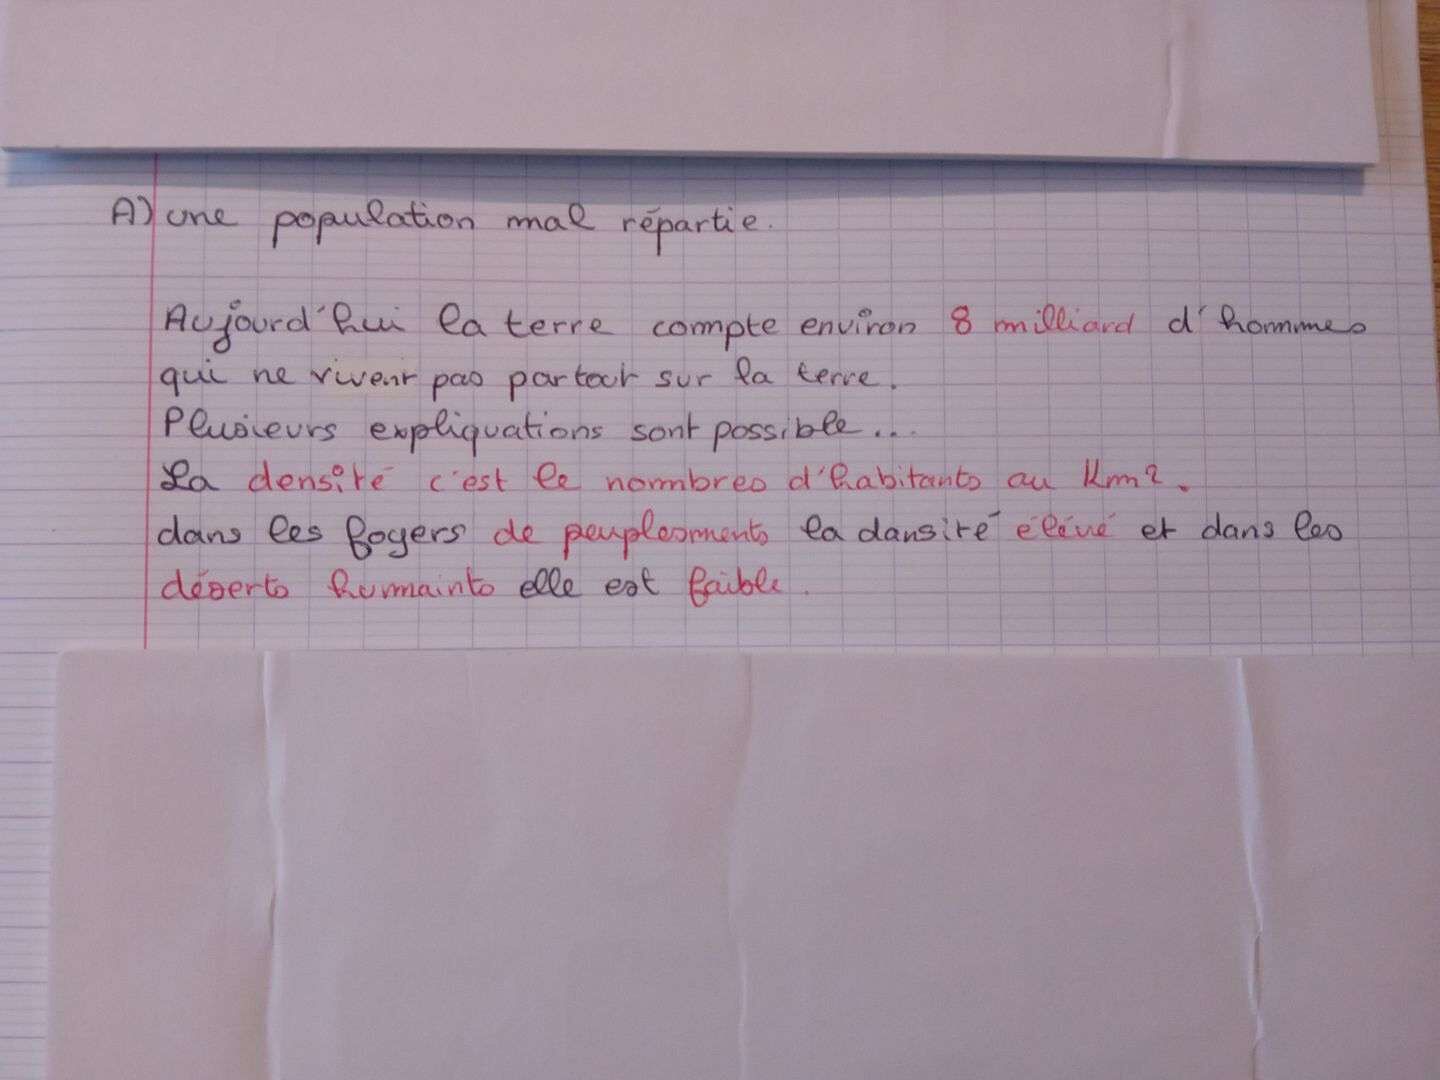 A) une population mal répartie.
Aujourd'hui la terre compte environ 8 milliard d'hommes
qui ne vivent pas partout sur la terre.
Plusieurs expliquations sont possible...
La densité c'est le nombres d'habitants au Km².
dans les foyers de peuplesments la dansité élévé et dans les
déserts humaints elle est faible.